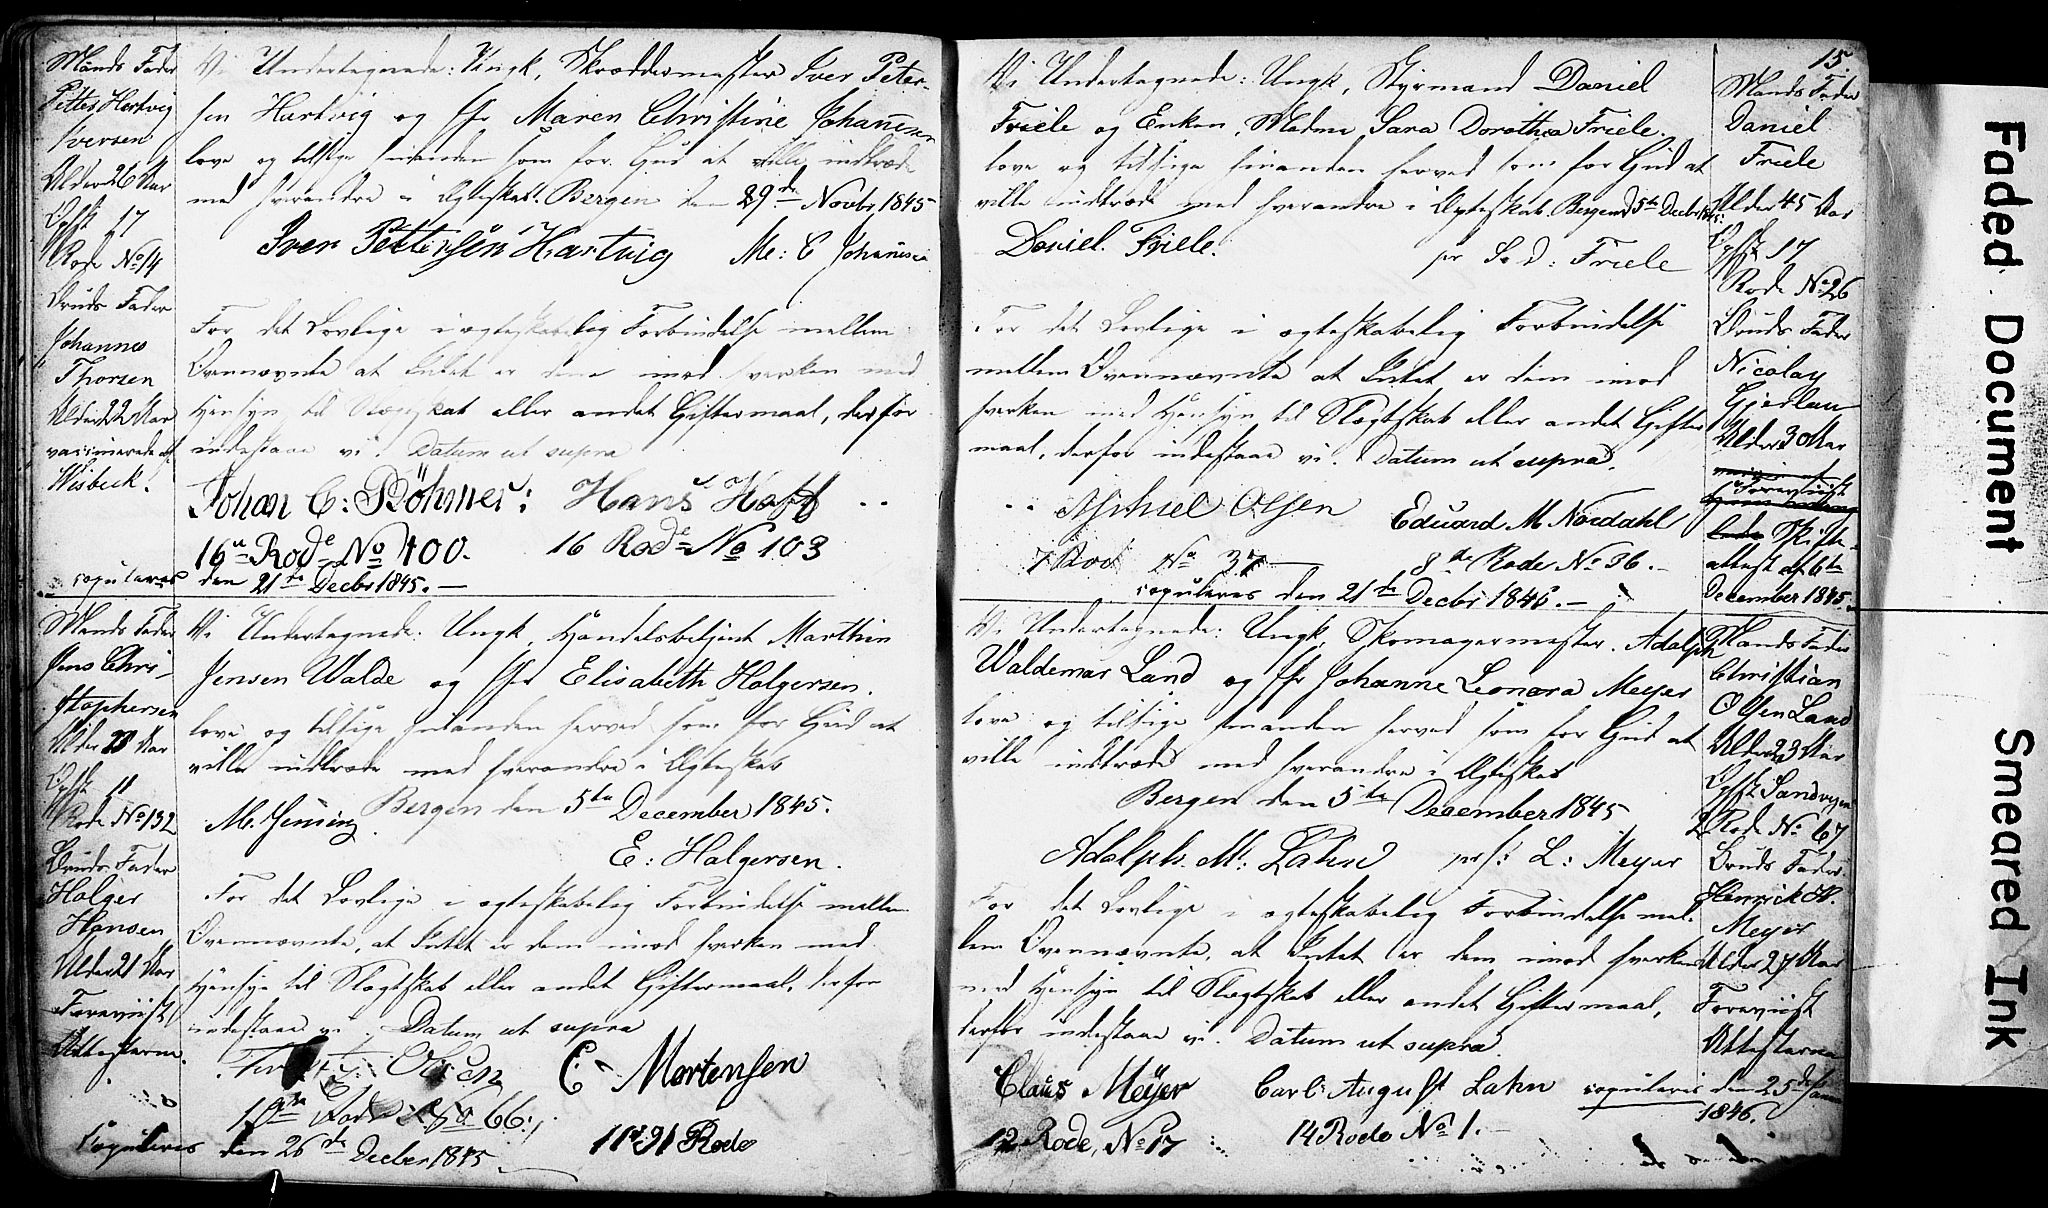 Mands Fader
Petter Hartvig
Iversen
Alder 26 Aar
Opht 17
Rode No 14
Bruds Fader
Johannes
Thorsen
Alder 22 Aar
vaccinerede af
Wisbeck.
Vi Undertegnede: Ungk, Skræddermester Iver Peter-
sen Hartvig og Jfr Maren Christine Johannesen
love og tilsige hinanden som for Gud at ville indtræde
med hverandre i Ægteskab. Bergen den 29de Novbr 1845
Iver Pettersen Hartvig M: C Johannesen
For det Lovlige i ægteskabelig Forbindelse mellem
Ovennævnte at Intet er dem imod hverken med
Hensyn til Slægtskab eller andet Giftermaal, derfor
indestaae vi. Datum ut supra
Johan C: Böhmer: Hans Hoff
16de Rode No 400. 16 Rode No 103
copuleres den 21de Decbr 1845.
Mands Fader
Jens Chri-
stophersen
Alder 28 Aar
Opht 11
Rode No 132
Bruds Fader
Holger
Hansen
Alder 21 Aar
Foreviist
Attesterne.
Vi Undertegnede: Ungk, Handelsbetjent Marthin
Jensen Walde og Jfr Elisabeth Holgersen.
love og tilsige hinanden herved som for Gud at
ville indtræde med hverandre i Ægteskab
Bergen den 5te December 1845.
M. Jensen
E: Holgersen.
For det Lovlige i ægteskabelig Forbindelse mellem
Ovennævnte, at Intet er dem imod hverken med
Hensyn til Slægtskab eller andet Giftermaal, derfor
indestaae vi. Datum ut supra
Olsen C Mortensen
10de Rode No 66. 11te 21 Rode
Copuleres den 26de Decbr 1845
15
Vi Undertegnede: Ungk, Styrmand Daniel
Friele og Enken, Madme Sara Dorothea Friele.
love og tilsige hinanden herved som for Gud at
ville indtræde med hverandre i Ægteskab. Bergen d 5te Decbr 1845.
Daniel Friele. pr S. D: Friele
For det Lovlige i ægteskabelig Forbindelse
mellem Ovennævnte at Intet er dem imod
hverken med Hensyn til Slægtskab eller andet Gifter
maal, derfor indestaae vi. Datum ut supra.
Michael Olsen Eduard M Nordahl
7 Rod No 37 8de Rode No 36.
copuleres den 21de Decbr 1845.
Mands Fader
Daniel
Friele
Alder 45 Aar
Opht 17
Rode No 26
Bruds Fader
Nicolay
Gjerlau
Alder 30 Aar
Foreviist
Skifte-
attest af 6te
December 1845.
Vi Undertegnede: Ungk, Skomagermester. Adolph
Waldemar Land og Jfr Johanne Leonora Meyer
love og tilsige hinanden herved som for Gud at
ville indtræde med hverandre i Ægteskab
Bergen den 5te December 1845
Adolph. W: Lahn pr J: L: Meyer
For det Lovlige i ægteskabelig Forbindelse mel-
lem Ovennævnte, at Intet er dem imod hverken
med Hensyn til Slægtskab eller andet Giftermaal,
derfor indestaae vi. Datum ut supra.
Claus Meyer Carl August Lahn copuleres den 25de Janu
1846.
12 Rode, No 17 14 Rode No 1.
Mands Fader
Christian
Olsen Land
Alder 23 Aar
Opht Sandvigen
2 Rode No 67
Bruds Fader
Henrick H.
Meyer
Alder 27 Aar
Foreviist
Attesterne
Faded Document
Smeared Ink